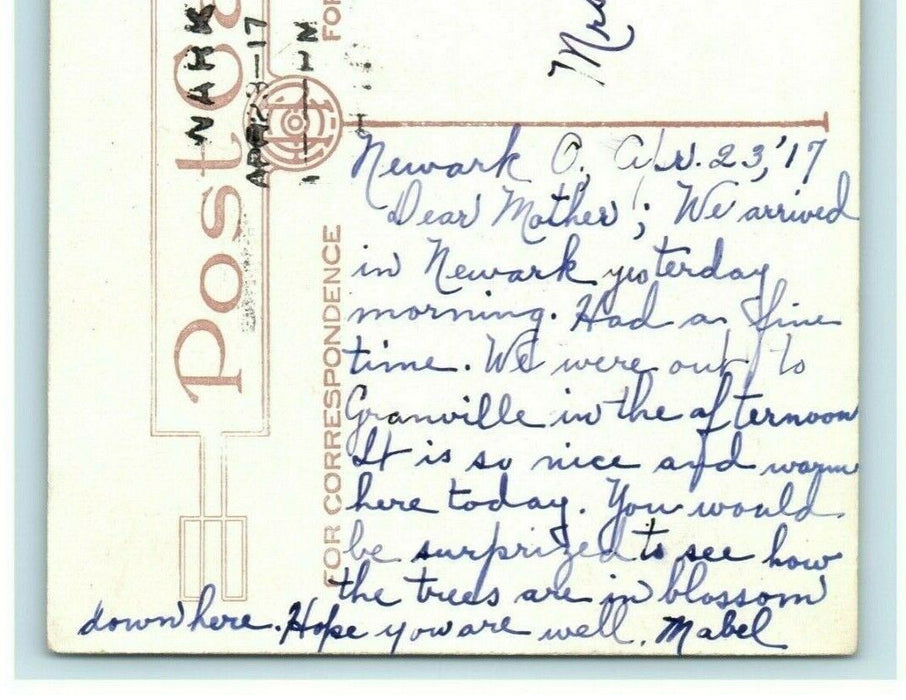 Mrs
Newark O, Apr. 23, '17
Dear Mother; We arrived
in Newark yesterday
morning. Had a fine
time. We were out to
Granville in the afternoon
It is so nice and warm
here today. You would
be surprized to see how
the trees are in blossom
down here. Hope you are well. Mabel
FOR CORRESPONDENCE
FOR
Post Ca
WARK
APR 23-17